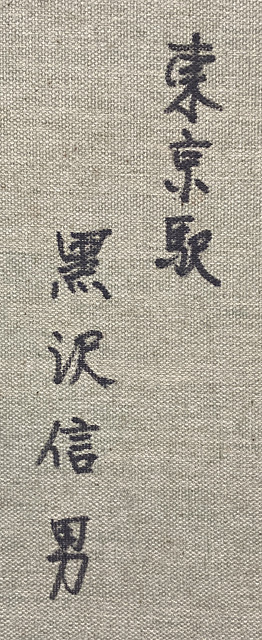 東京駅
黒沢信男